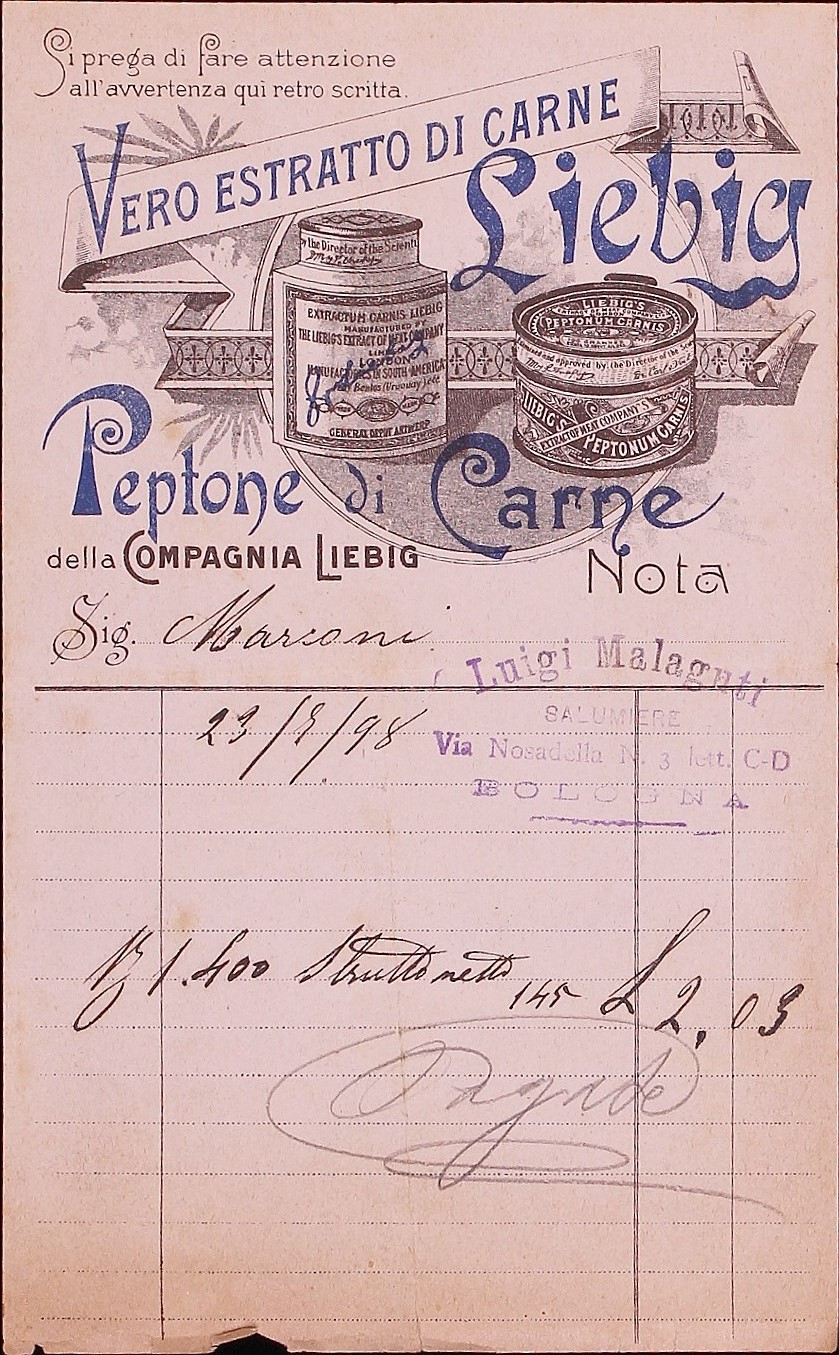 Si prega di fare attenzione
all'avvertenza qui retro scritta.
VERO ESTRATTO DI CARNE
Liebig
by the Director of the Scienti
EXTRACTUM CARNIS LIEBIG
MANUFACTURED BY
THE LIEBIG'S EXTRACT OF MEAT COMPANY
LONDON
MANUFACTORIES IN SOUTH AMERICA
GENERAL DEPOT ANTWERP
LIEBIG'S
PEPTONUM CARNIS
and approved by the Director of the
LIEBIG'S
EXTRACT OF MEAT COMPANY'S
PEPTONUM CARNIS
Peptone di Carne
della COMPAGNIA LIEBIG
Nota
Sig. Marconi
Luigi Malaguti
SALUMIERE
Via Nosadella N. 3 lett. C-D
BOLOGNA
23/ /98
1.400 Strutto netto 145 L 2.03
Pagato